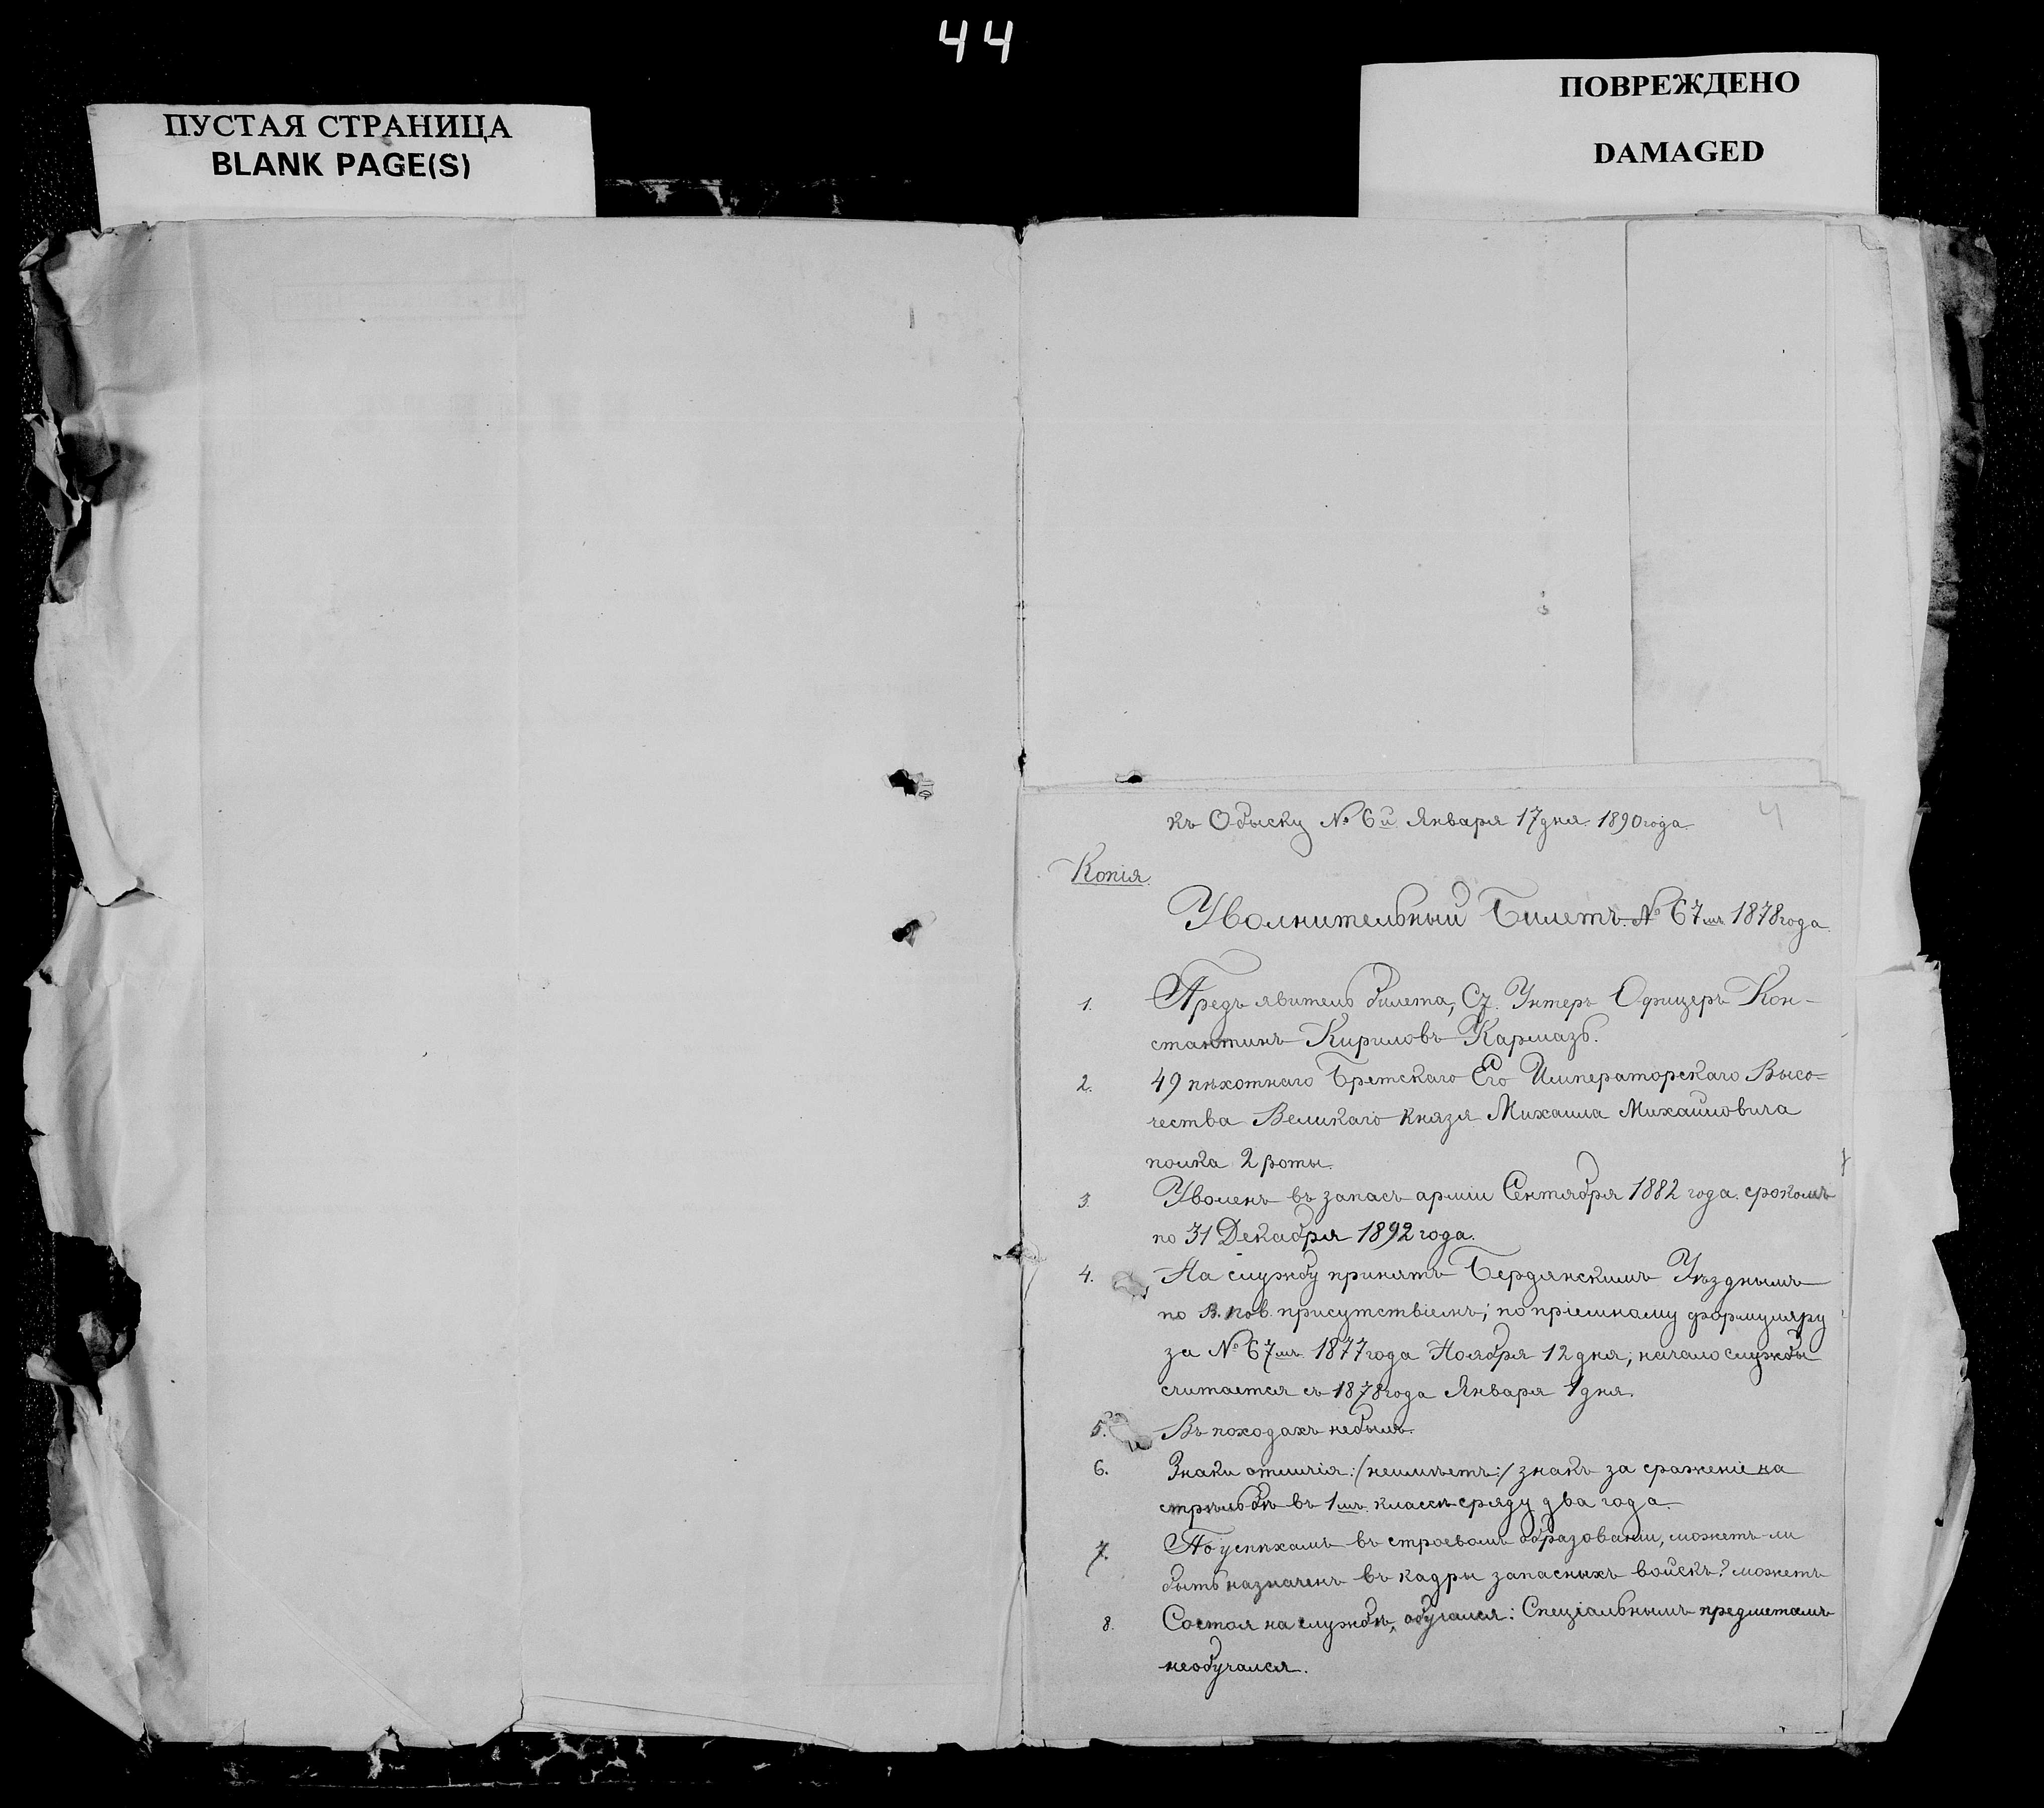 44
ПУСТАЯ СТРАНИЦА
BLANK PAGE(S)
ПОВРЕЖДЕНО
DAMAGED
4
къ Обыску № 6й Января 17 дня 1890 года.
Копія.
Уволнительный Билетъ № 67мъ 1878 года.
1. Предъявитель билета, Ст. Унтеръ Офицеръ Кон-
стантинъ Кириловъ Кармазь.
2. 49 пѣхотнаго Бретскаго Его Императорскаго Высо=
чества Великаго князя Михаила Михайловича
полка 2 роты.
3. Уволенъ въ запасъ арміи Сентября 1882 года. срокомъ
по 31 Декабря 1892 года.
4. На службу принятъ Бердянскимъ Уѣзднымъ
по в. пов. присутствіемъ; по пріемному формуляру
за № 67мъ 1877 года Ноября 12 дня; начало службы
считается съ 1878 года Января 1 дня.
5. Въ походахъ небылъ.
6. Знаки отличія: /неимѣетъ:/ знакъ за сраженіе на
стрѣльбѣ въ 1мъ классѣ сряду два года.
7. По успѣхамъ въ строевомъ образовании, можетъ-ли
быть назначенъ въ кадры запасныхъ войскъ? можетъ
8. Состоя на службѣ, обучался: Спеціальнымъ предметамъ
необучался.